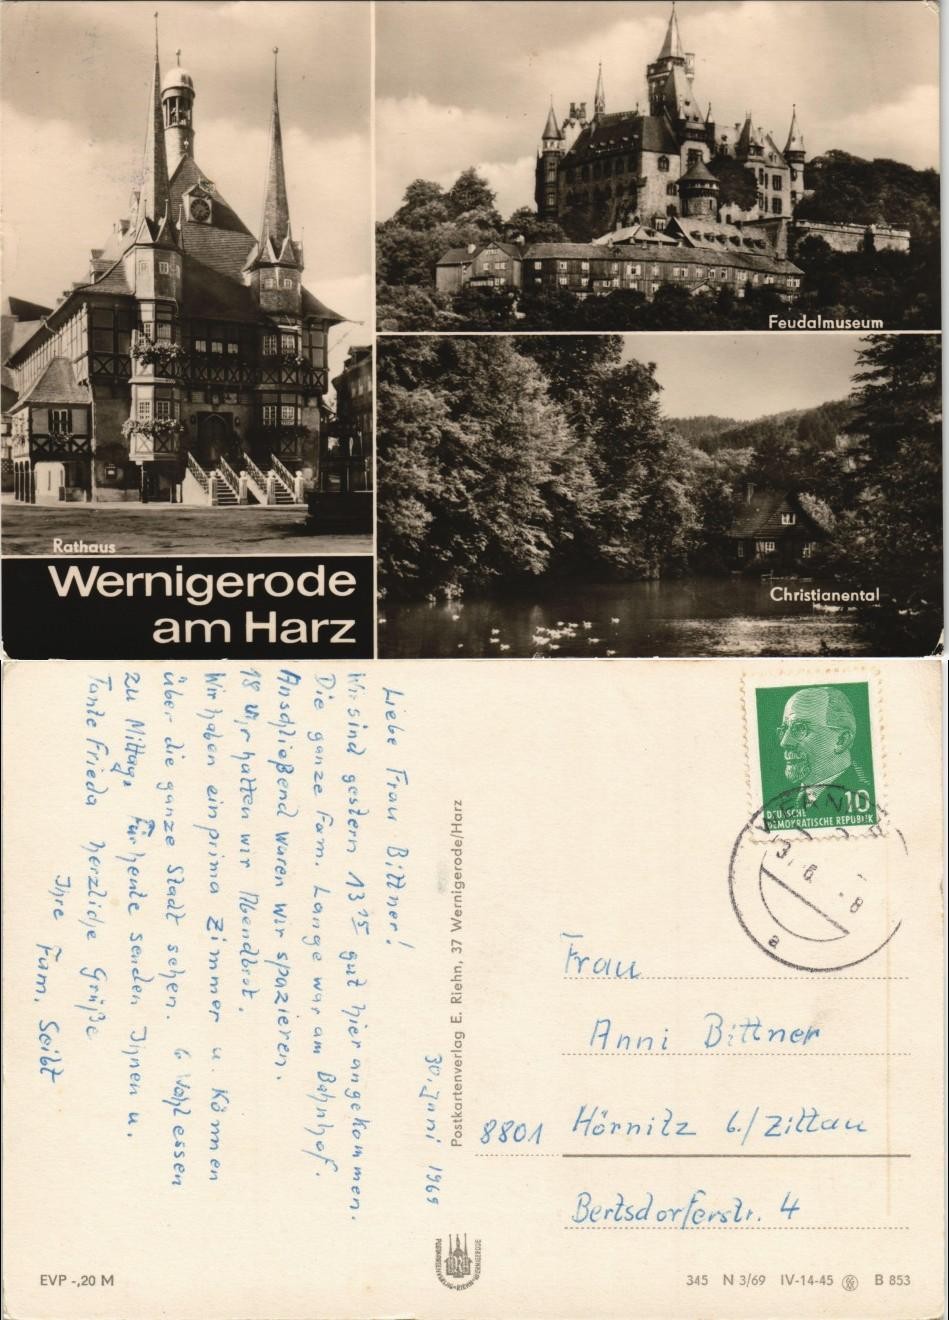 Rathaus
Feudalmuseum
Christianental
Wernigerode
am Harz
30. Juni 1969
Liebe Frau Bittner!
Wir sind gestern 13 15 gut hier angekommen.
Die ganze Fam. Lange war am Bahnhof.
Anschließend waren wir spazieren.
18 Uhr hatten wir Abendbrot.
Wir haben ein prima Zimmer u. Können
über die ganze Stadt sehen. 6 Wahlessen
zu Mittag. Für heute senden Ihnen u.
Tante Frieda herzliche Grüße
Ihre Fam. Seibt
Postkartenverlag E. Riehn, 37 Wernigerode/Harz
10
DEUTSCHE
DEMOKRATISCHE REPUBLIK
a
Frau
Anni Bittner
8801 Hörnitz b./Zittau
Bertsdorferstr. 4
POSTKARTENVERLAG·E·RIEHN·WERNIGERODE
EVP -,20 M
345 N 3/69 IV-14-45 B 853